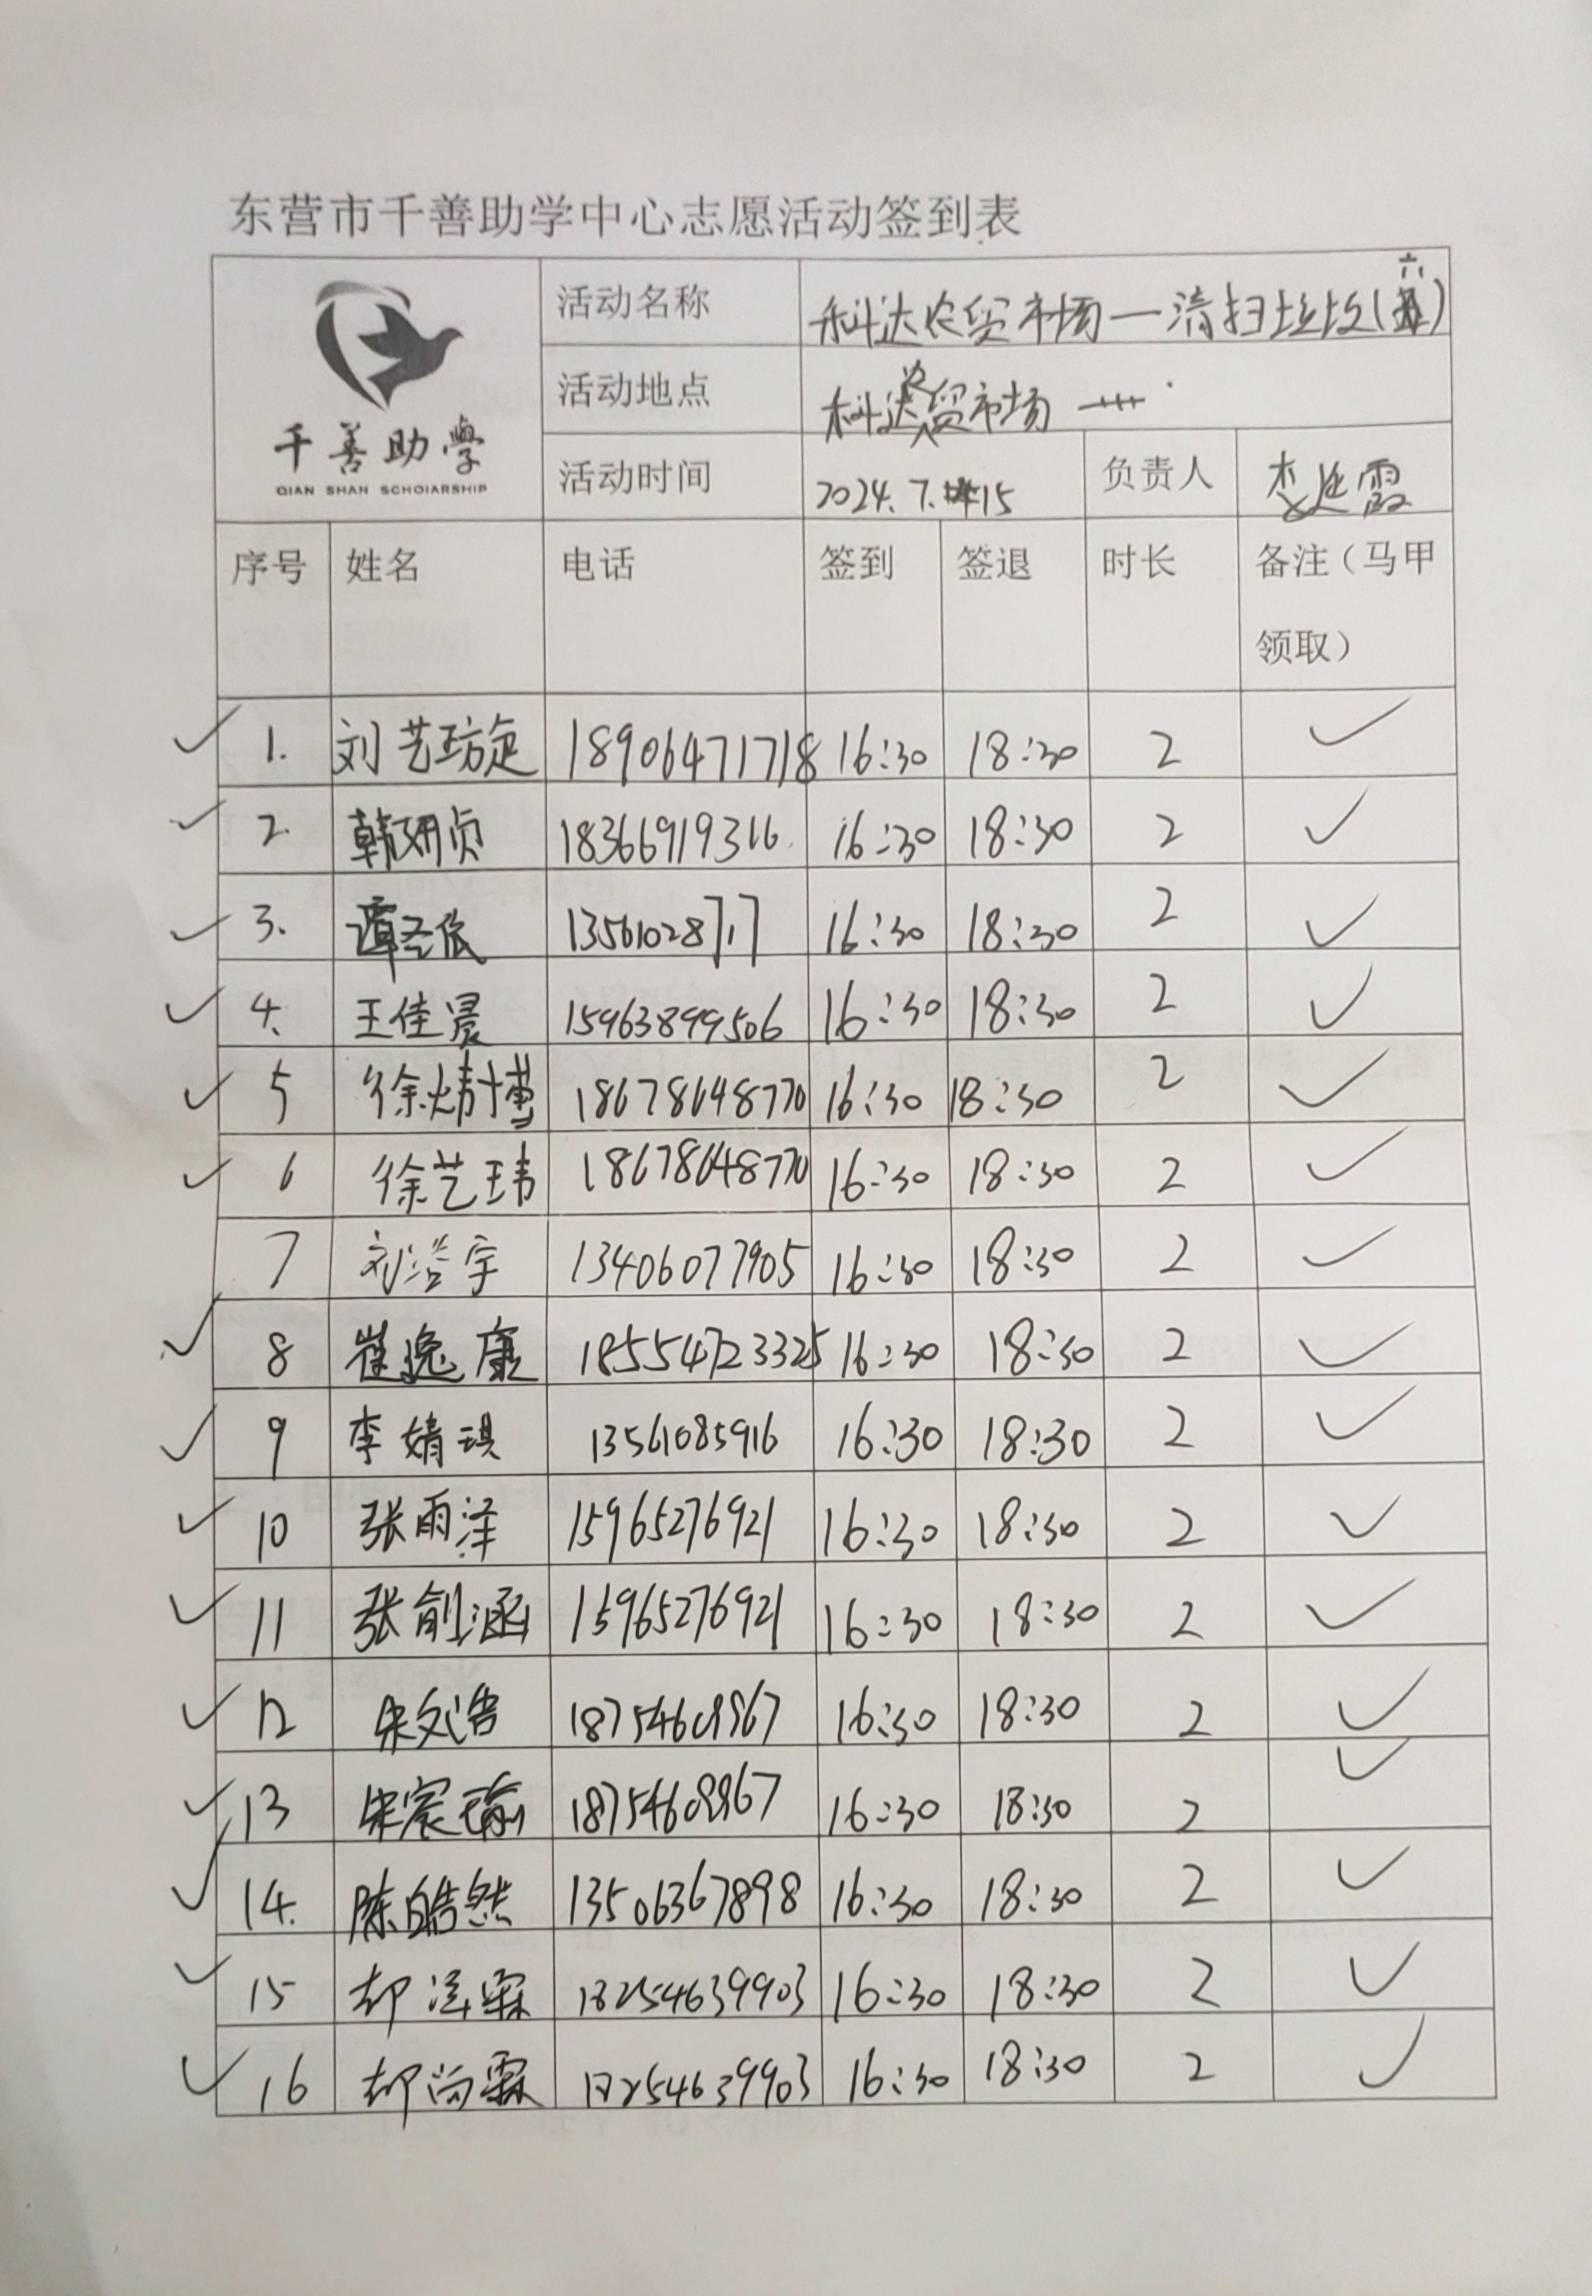 东营市千善助学中心志愿活动签到表
千善助學
QIAN SHAN SCHOIARSHIP
活动名称 科达农贸市场一清扫垃圾(六)
活动地点 科达农贸市场
活动时间 2024.7.15 负责人 李廷霞
序号 姓名 电话 签到 签退 时长 备注（马甲领取）
1. 刘艺 18906471718 16:30 18:30 2 ✓
2. 韩妍贞 18366919316 16:30 18:30 2 ✓
3. 谭 16:30 18:30 2 ✓
4. 王佳晨 15963899506 16:30 18:30 2 ✓
5 徐婧博 18678648770 16:30 18:30 2 ✓
6 徐艺玮 18678648770 16:30 18:30 2 ✓
7 刘浩宇 13406077905 16:30 18:30 2 ✓
8 崔逸康 18554723325 16:30 18:30 2 ✓
9 李婧琪 13561085916 16:30 18:30 2 ✓
10 张雨泽 15965276921 16:30 18:30 2 ✓
11 张涵 15965276921 16:30 18:30 2 ✓
12 宋文浩 16:30 18:30 2 ✓
13 宋宸瑜 16:30 18:30 2 ✓
14. 陈皓然 13506367898 16:30 18:30 2 ✓
15 霖 18254639903 16:30 18:30 2 ✓
16 霖 18254639903 16:30 18:30 2 ✓